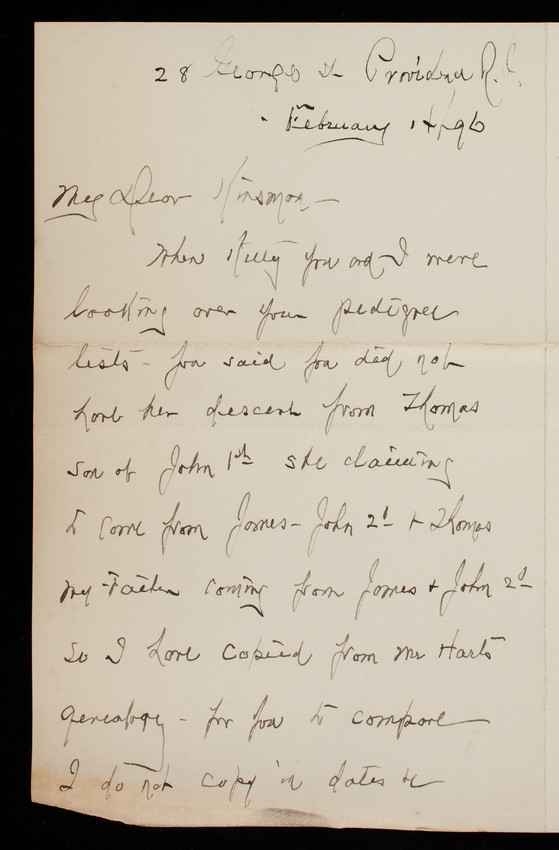 28 George St Providence R.I.
February 14/96
My Dear Kinsman,—
When Kitty you and I were
looking over your pedigree
lists - you said you did not
have her descent from Thomas
son of John 1st she claiming
to come from James - John 2d + Thomas
my Father coming from James + John 2d
so I have copied from Mr Harts
genealogy - for you to compare
I do not copy in dates &c